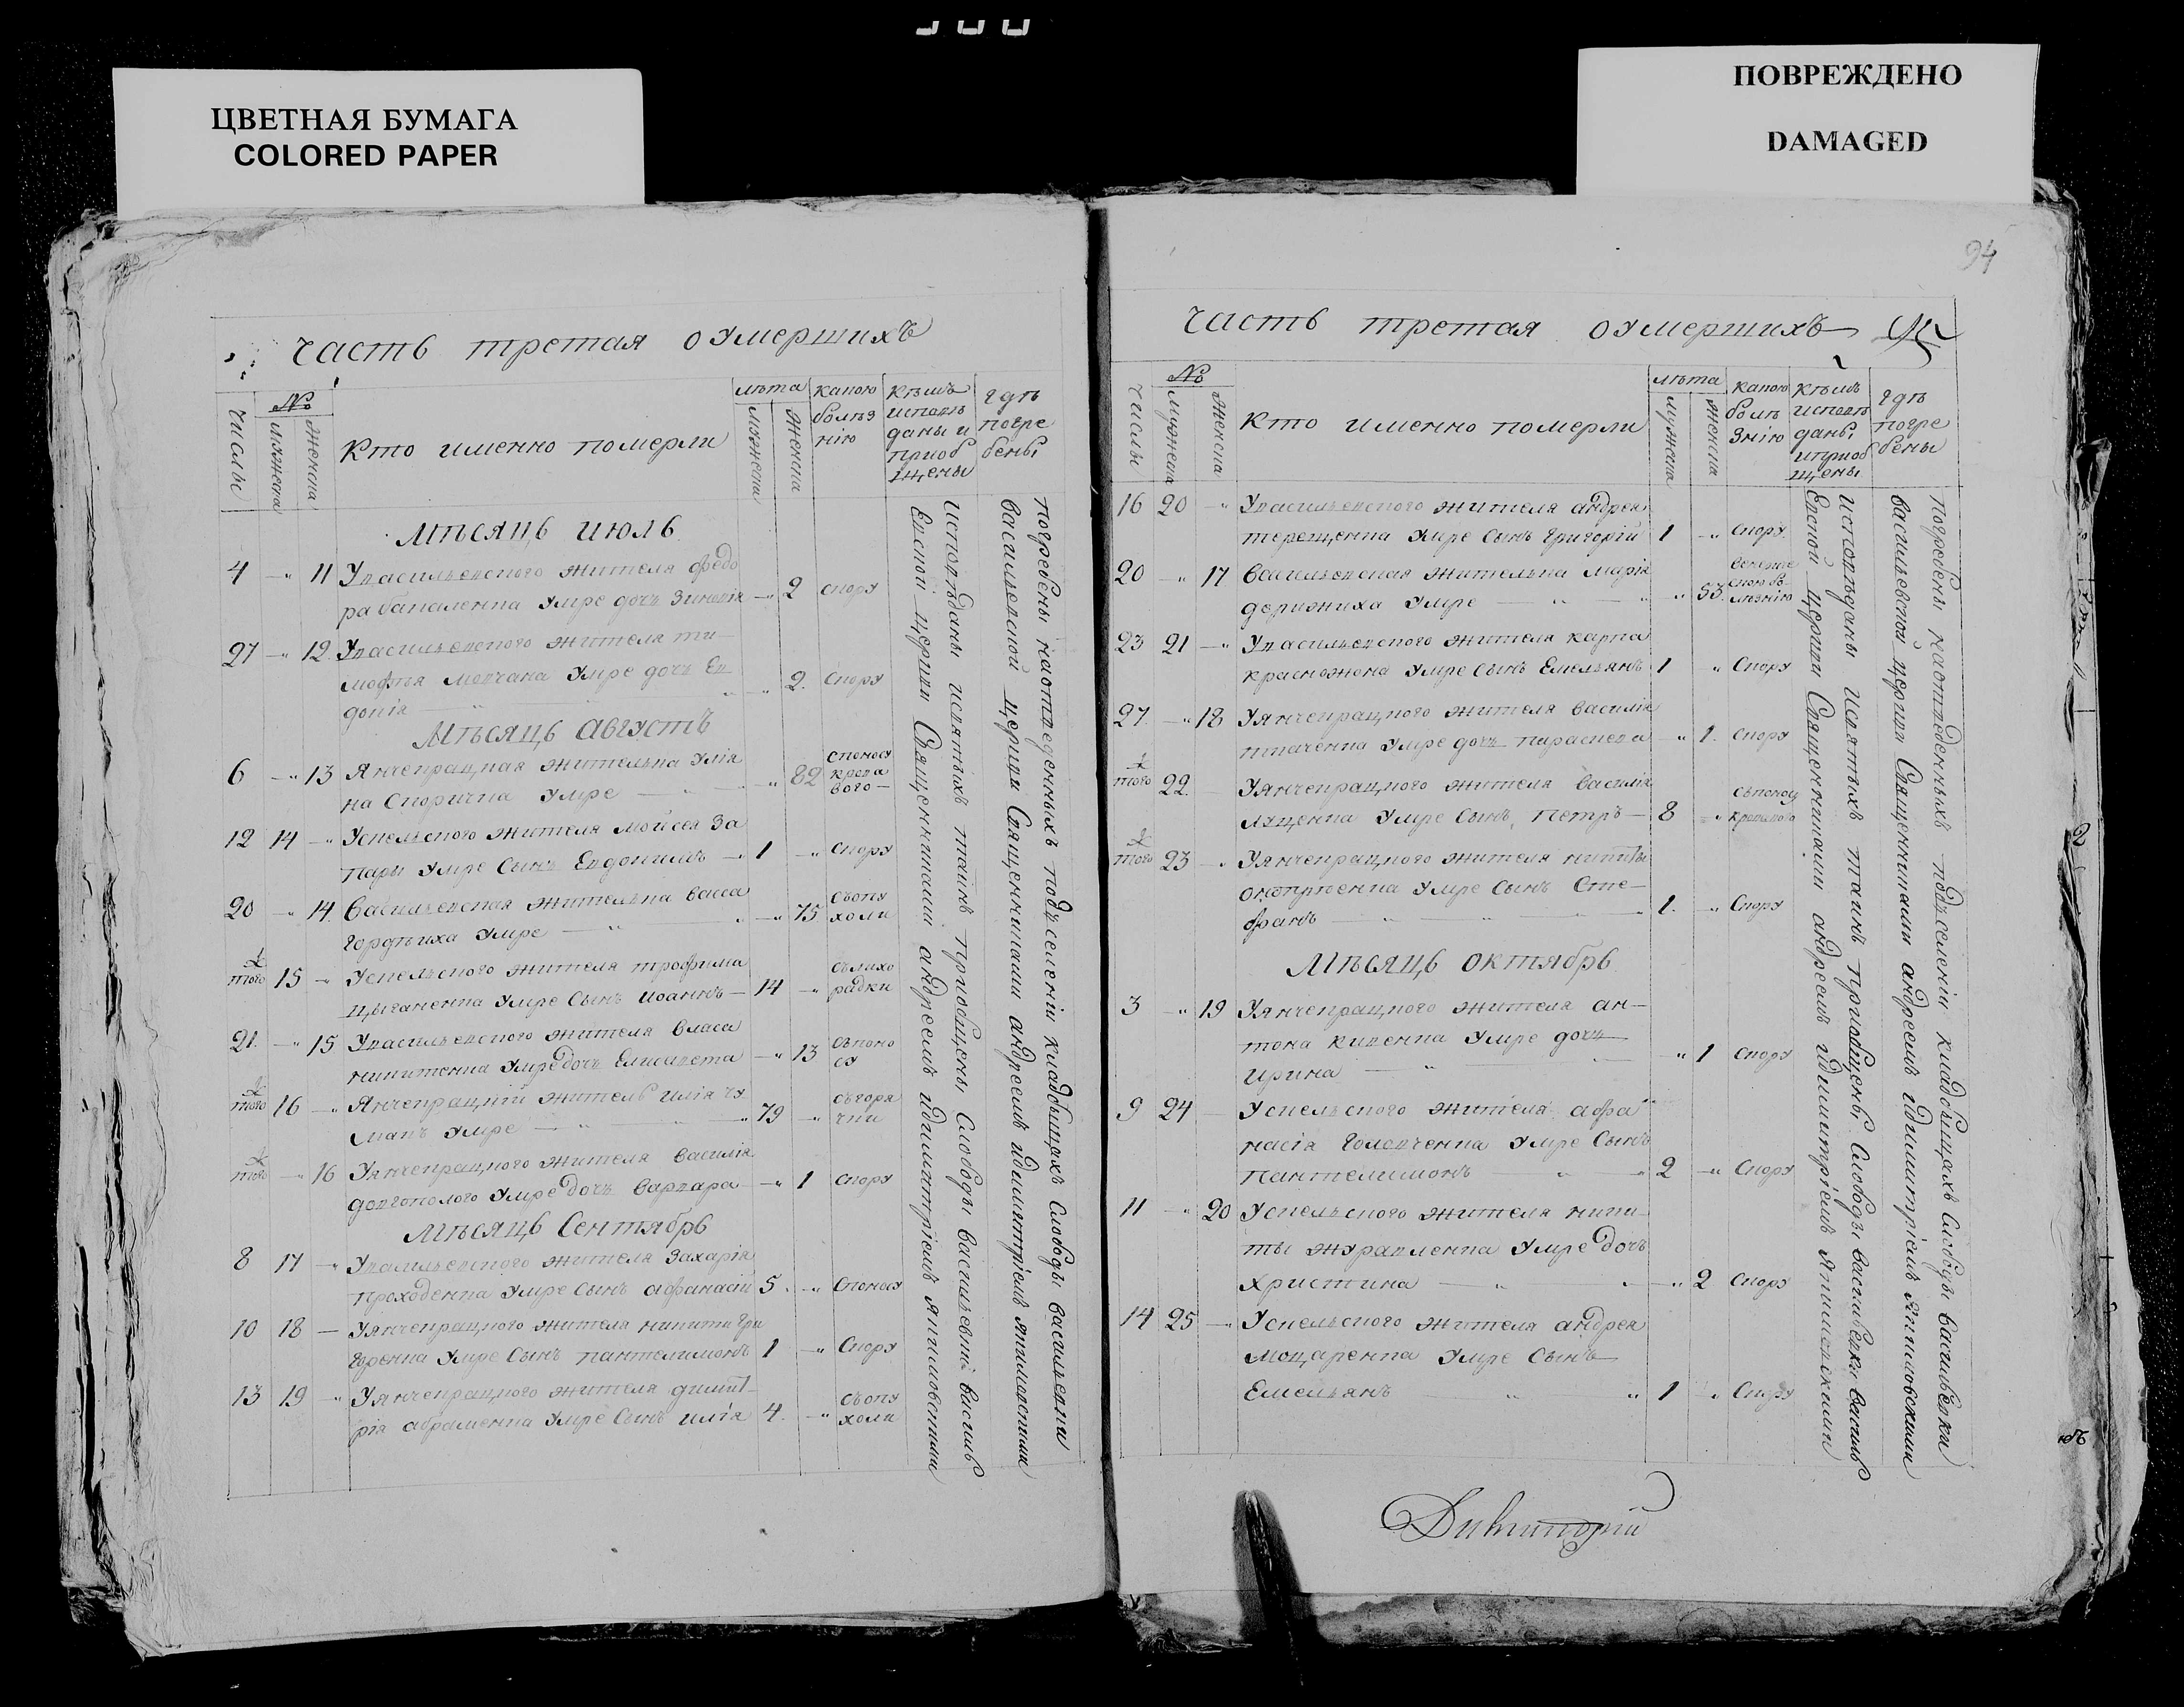 ЦВЕТНАЯ БУМАГА
COLORED PAPER
ПОВРЕЖДЕНО
DAMAGED
94
Часть третая оумершихъ
числы
№
мужеска
женска
Кто именно померли
лѣта
мужеска
женска
какою болѣзнію
Кѣмъ исповѣданы и приобщены
гдѣ погребены
Мѣсяцъ июль
4 11 Увасильевского жителя федо
ра бакаленка умре дочь Зиновія 2 скору
27 12 Увасильевского жителя ти
мофѣя мовчана умре дочь Ев
докія 2 скору
Мѣсяцъ августъ
6 13 Янчекрацкая жителька улія
на Скоричка умре 82 споносу кровавого
12 14 Успельского жителя мойсея За
пары умре Сынъ Евдокимъ 1 скору
20 14 Васильевская жителька васса
гордѣиха умре 75 съопухоли
того 15 Успельского жителя трофима
цыганенка умре Сынъ иоаннъ 14 сълихорадки
21 15 Увасильевского жителя власа
никитенка умре дочь Елисавета 13 съпоносу
того 16 Янчекрацкій житель илія чу
макъ умре 79 съгорячки
того 16 Уянчекрацкого жителя василія
довгополого умре дочь варвара 1 скору
Мѣсяцъ Сентябрь
8 17 Увасильевского жителя Захарія
проходенка умре Сынъ афанасій 5 споносу
10 18 Уянчекрацкого жителя никиты гри
горенка умре Сынъ пантелимонъ 1 Скору
13 19 Уянчекрацкого жителя димит
рія авраменка умре Сынъ илія 4 съопухоли
Исповѣданы исвятыхъ таинъ приобщены Слободы васильевки василь
евской церкви Священниками андреемъ идимитріемъ якимовскими
погребены наотведенныхъ подъселеніи кладбищахъ Слободы васильевки
васильевской церкви Священниками андреемъ идимитріемъ якимовскими
Часть третая оумершихъ
числы
№
мужеска
женска
Кто именно померли
лѣта
мужеска
женска
какою болѣзнію
Кѣмъ исповѣданы иприобщены
гдѣ погребены
16 20 Увасильевского жителя андрея
терещенка умре Сынъ григорій 1 скору
20 17 Васильевская жителька марія
умре 53
23 21 Увасильевского жителя карпа
красножона умре Сынъ Емельянъ 1 Скору
27 18 Уянчекрацкого жителя василія
ткаченка умре дочь параскева 1 скору
того 22 Уянчекрацкого жителя василія
луценка умре Сынъ Петръ 8 съпоносу кровавого
того 23 Уянчекрацкого жителя никиты
умре Сынъ Сте
фанъ 1 Скору
Мѣсяцъ октябрь
3 19 Уянчекрацкого жителя ан
тона кивенка умре дочь
ирина 1 скору
9 24 Успельского жителя афа
насія головченка умре Сынъ
пантелимонъ 2 Скору
11 20 Успельского жителя ники
ты журавленка умре дочь
христина 2 Скору
14 25 Успельского жителя андрея
моцаренка умре Сынъ
Емельянъ 1 Скору
Исповѣданы исвятыхъ таинъ приобщены Слободы васильевки василь
евской церкви Священниками андреемъ идимитріемъ якимовскими
погребены наотведенныхъ подъселеніи кладбищахъ Слободы васильевки
васильевской церкви Священниками андреемъ идимитріемъ якимовскими